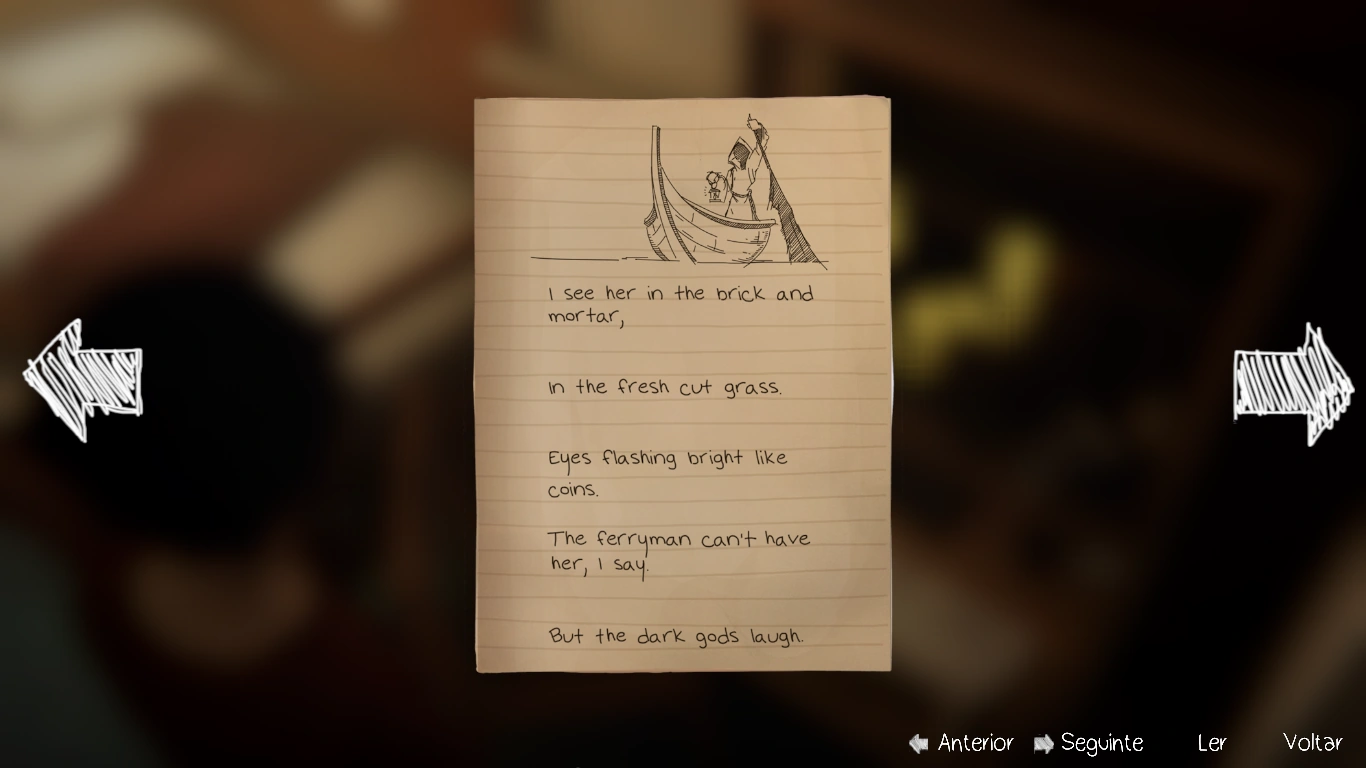 I see her in the brick and
mortar,
In the fresh cut grass.
Eyes flashing bright like
coins.
The ferryman can't have
her, I say.
But the dark gods laugh.
Anterior Seguinte Ler Voltar